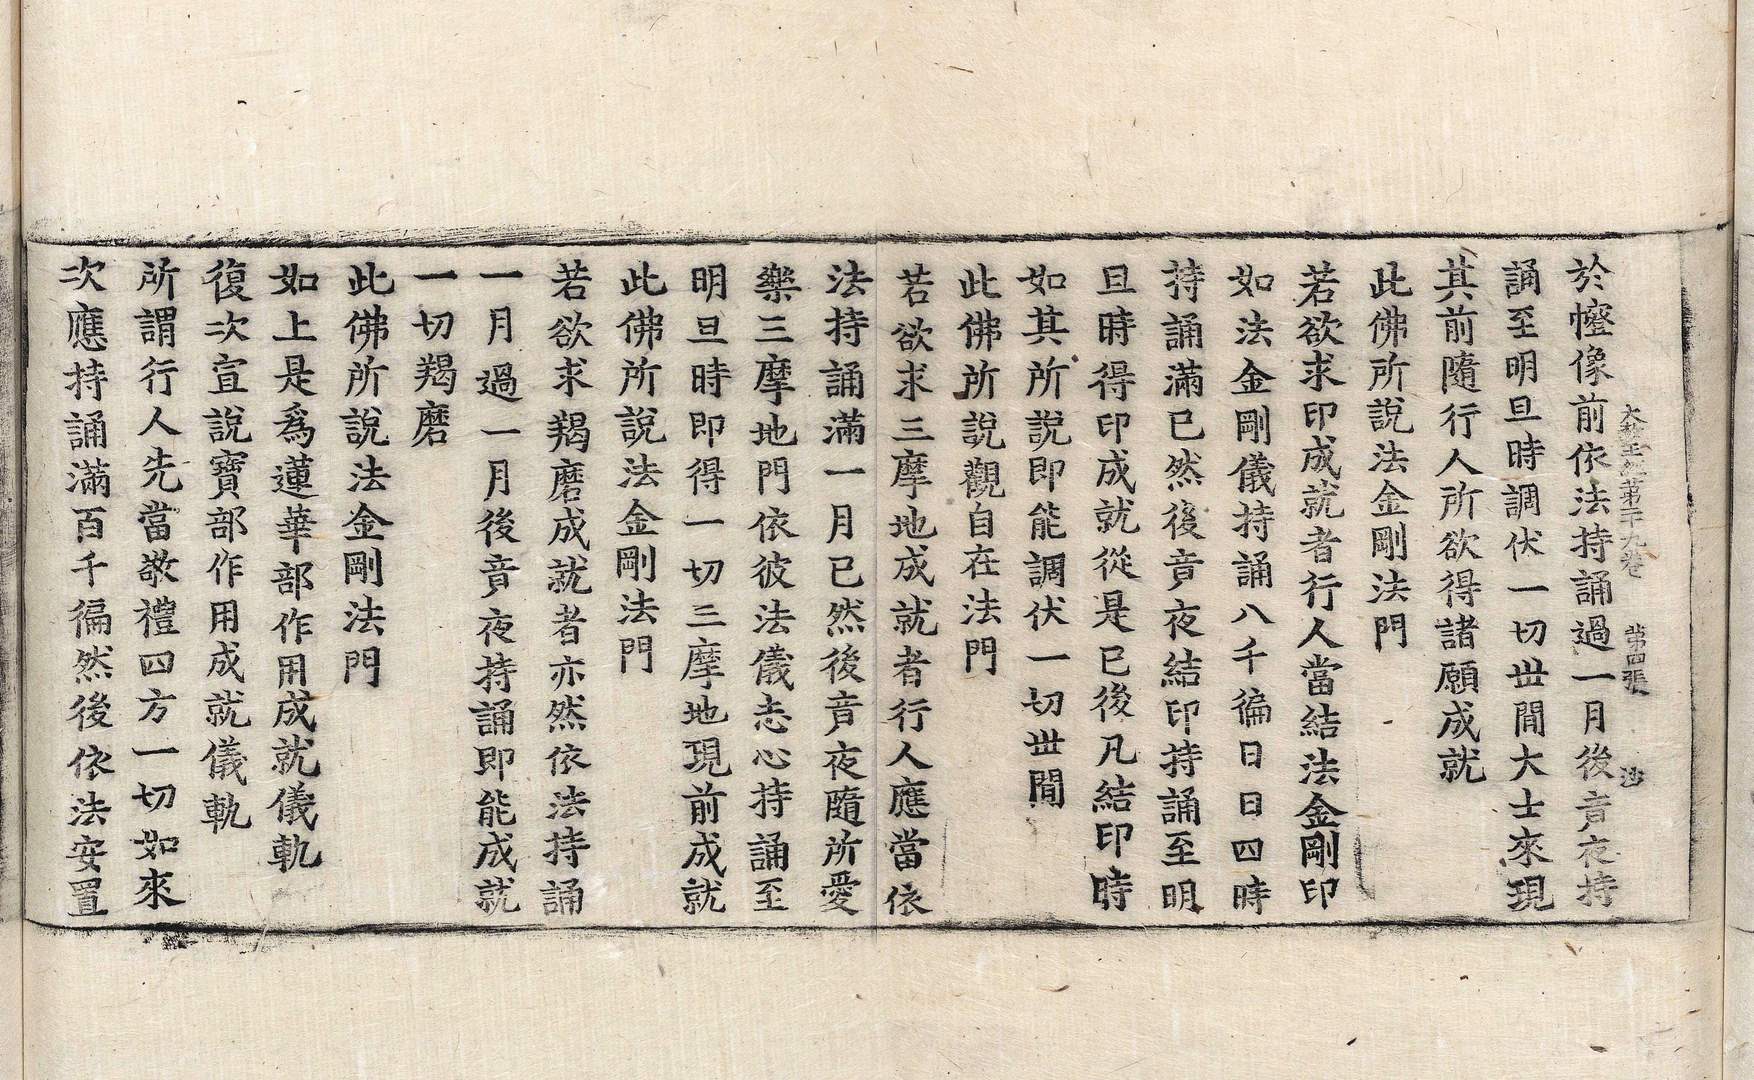 大教王經第二十九卷　第四張　沙
於㡧像前依法持誦過一月後竟夜持
誦至明旦時調伏一切世間大士來現
其前隨行人所欲得諸願成就
此佛所說法金剛法門
若欲求印成就者行人當結法金剛印
如法金剛儀持誦八千徧日日四時
持誦滿已然後竟夜結印持誦至明
旦時得印成就從是已後凡結印時
如其所說即能調伏一切世間
此佛所說觀自在法門
若欲求三摩地成就者行人應當依
法持誦滿一月已然後竟夜隨所愛
樂三摩地門依彼法儀志心持誦至
明旦時即得一切三摩地現前成就
此佛所說法金剛法門
若欲求羯磨成就者亦然依法持誦
一月過一月後竟夜持誦即能成就
一切羯磨
此佛所說法金剛法門
如上是爲蓮華部作用成就儀軌
復次宣說寶部作用成就儀軌
所謂行人先當敬禮四方一切如來
次應持誦滿百千徧然後依法安置